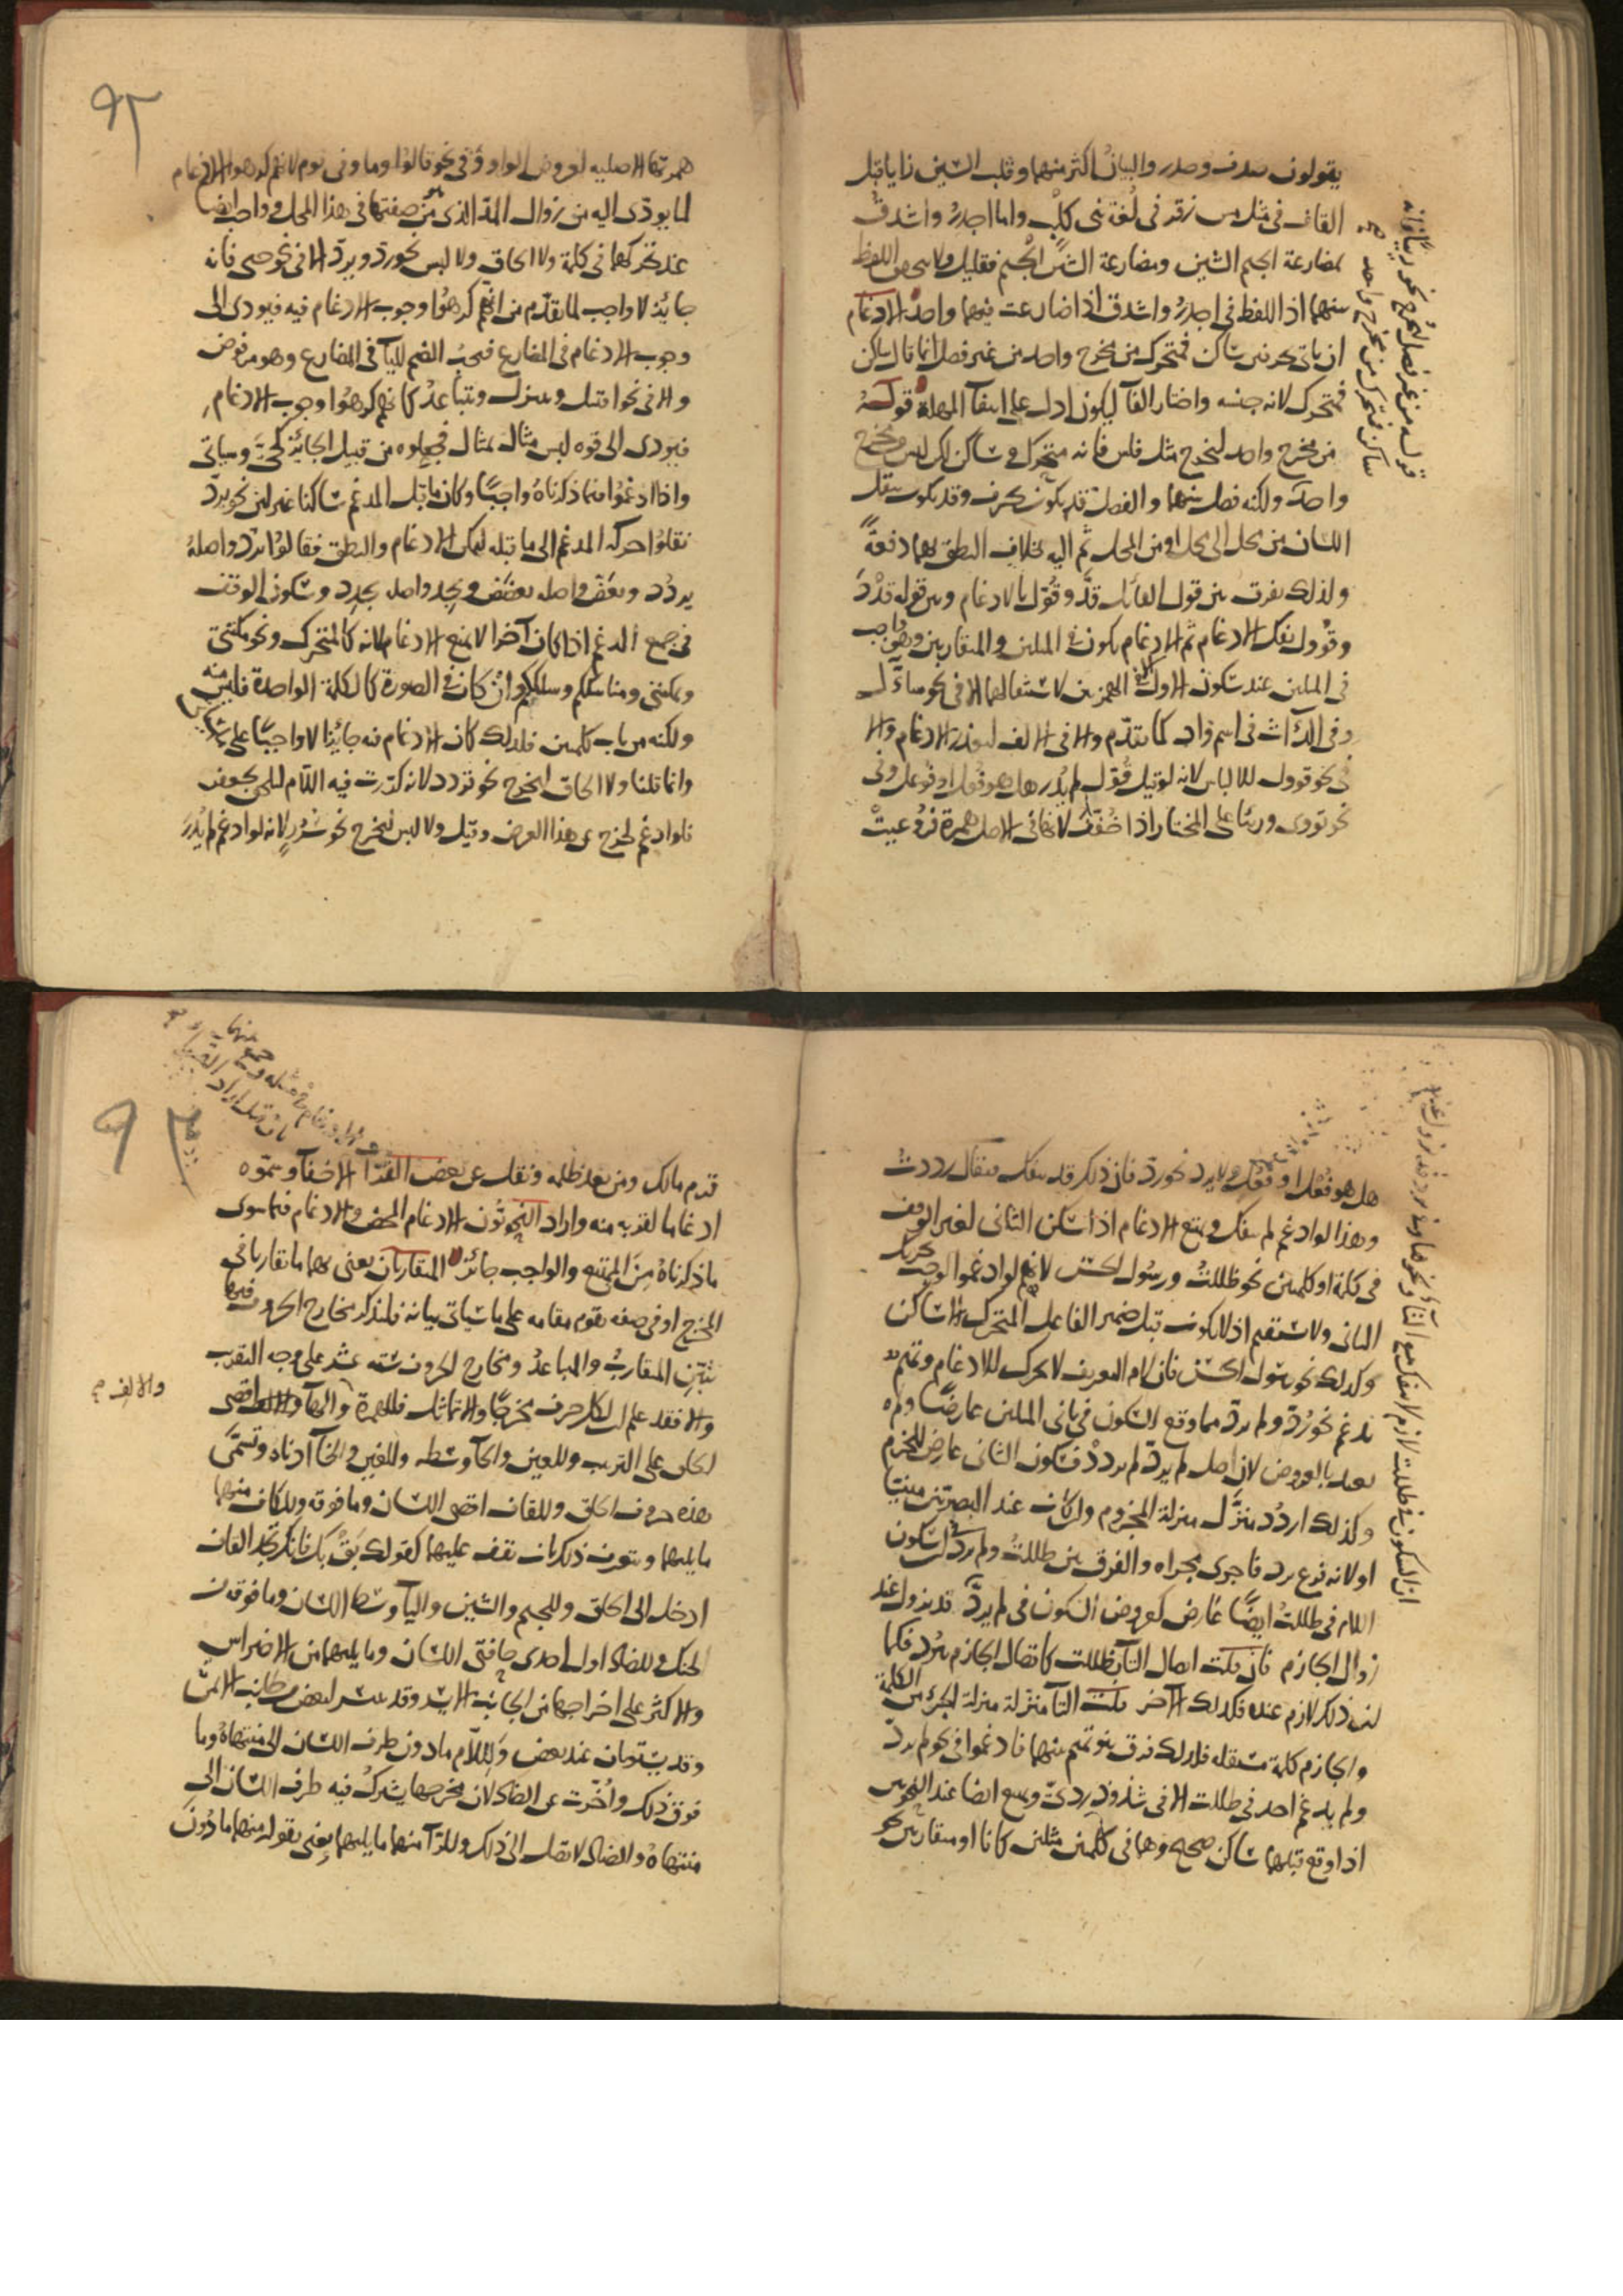 يقولون صدق وصدر والبيان أكثر منهما وقلب السين زايا قبل
القاف في مثل مس زقر في لغة بني كلب واما اجدر واشدق
بمضارعة الجيم الشين ومضارعة الشين الجيم فقليل ولا اللفظ
منهما اذ اللفظ في اجدر واشدق اذا ضارعت فيهما واحد الادغام
ان ياتي بحرفين ساكن فمتحرك من مخرج واحد من غير فصل انما قال ساكن
فمتحرك لانه جنسه واختار الفآ ليكون ادل على انتفآ المهلة قوله
من مخرج واحد ليخرج مثل فلس فانه متحرك وساكن لكن ليس من مخرج
واحد ولكنه فصل بينهما والفصل قد يكون بحرف وقد يكون بنقل
اللسان من محل الى محل او من المحل ثم اليه بخلاف النطق بهما دفعةً
ولذلك يفرق بين قول القائل قدَّ وقوّل بالادغام وبين قوله قدْدَ
وقوول بفك الادغام ثم الادغام يكون في المثلين والمتقاربين وهو واجب
في المثلين عند سكون الاول الا في الهمزتين لاستثقالهما الا في نحو سأّل
وفي الدّأث في اسم واد كما تقدّم والا في الالف لتعذر الادغام والا
في نحو قوول للالباس لانه لو قيل قوّل لم يدر هل هو فعل او فوعل وفي
نحو تووي وريئا على المختار اذا خففت لانها في الاصل همزة فروعيت
قوله من غير فصل ليخرج نحو ريياً فانه
ساكن فمتحرك من مخرج واحد
٩٢
همزتها الاصلية لعروض الواو وفي نحو قالوا وما وفي يوم لانهم كرهوا الادغام
لما يودّى اليه من زوال المدّ الذي هو من صفتها في هذا المحل وواجب ايضا
عند تحركهما في كلمة ولا الحاق ولا لبس نحو ردّ ويردّ الا في نحو حيي فانه
جائز لا واجب لما تقدّم من انهم كرهوا وجوب الادغام فيه فيودى الى
وجوب الادغام في المضارع فيجب الضم لليآ في المضارع وهو مرفوض
والا في نحو اقتتل وتتنزل وتتباعد كانهم كرهوا وجوب الادغام
فيودى الى قوه لبس مثال بمثال فجعلوه من قبيل الجائز كحيي وسياتي
واذا ادغموا فيما ذكرناه واجبًا وكان ما قبل المدغم ساكنا غير لين نحو يردّ
نقلوا حركة المدغم الى ما قبله ليمكن الادغام والنطق فقالوا يردّ واصله
يردُد ويعضّ واصله يعضَض ويجِد واصله يجدِد وسكون الوقف
في جمع المدغم اذا كان آخرا لا يمنع الادغام لانه كالمتحرك ونحو مكنتي
ويمكنني ومناسككم وسلككم وان كان في الصورة كالكلمة الواحدة فليس منه
ولكنه من باب كلمتين فلذلك كان الادغام فيه جائزا لا واجبًا على
وانما قلنا ولا الحاق ليخرج نحو قردد لانه كررت فيه اللّام للحق بجعفر
فلو ادغم لخرج عن هذا الغرض وقيل ولا لبس ليخرج نحو سُرُرٍ لانه لو ادغم لم يُدْرَ
هل هو فُعُل او فُعْل ولا يرد نحو ردّ فان ذلك قد ينفك فيقال رددت
وهذا لو ادغم لم ينفك ويمتنع الادغام اذا سكن الثاني لغير الوقف
في كلمة او كلمتين نحو ظللت ورسول الحسن لانهم لو ادغموا لوجب تحريك
الثاني ولا يستقيم اذ لا يكون قبل ضمير الفاعل المتحرك الا ساكن
وكذلك نحو رسول الحسن فان لام التعريف لا تحرك للادغام وتميم
تدغم نحو رُدّ ولم يردّ مما وقع السكون في ثاني المثلين عارضًا ولم
يعتد بالعروض لان اصل لم يردّ لم يردد فسكون الثاني عارض للجزم
وكذلك اردُد منزّل منزلة المجزوم وان كان عند البصريين مبنيّا
او لانه فرع يرد فاجرى مجراه والفرق بين ظللت ولم يردّ ان سكون
اللام في ظللت ايضًا عارض كعروض السكون في لم يردّ قد يزول عند
زوال الجازم فان قلت اتصال التآ بظللت كاتصال الجازم بيَرُد فكما
ان ذلك لازم عنده فكذلك الآخر قلت التآ منزلة منزلة الجزء من الكلمة
والجازم كلمة مستقله فلذلك فرق بنو تميم بينهما فادغموا في نحو لم يردّ
ولم يدغم احد في ظللت الا في شذوذ ردئ ويمتنع ايضا عند النحويين
اذا وقع قبلهما ساكن صحيح وهما في كلمتين مثلين كانا او متقاربين نحو
ان السكون في ظللت لازم لا ينفك مع التآ ونحوها
٩٣
والالف
قدم مالك ومن بعد ظلمه ونقل عن بعض القرّآ الاخفآ وسمّوه
ادغاما لقربه منه واراد النحويّون الادغام المحض والادغام فيما سوى
ما ذكرناه مِنَ الممتنع والواجب جائز المتقاربان يعنى بهما ما تقاربا في
المخرج او في صفه تقوم مقامه على ما سياتي بيانه فلنذكر مخارج الحروف فيها
تبيّن المتقارب والمباعد ومخارج الحروف ستة عشر على وجه التقريب
والا فقد علم ان لكل حرف مخرجًا والا تماثل فللهمزة والهآ والالف اقصى
الحلق على الترتيب وللعين والحآ وسطه وللغين والخآ ادناه وتسمّى
هذه حروف الحلق وللقاف اقصى اللسان وما فوقه وللكاف منهما
ما يليهما ويعرف ذلك بان تقف عليهما كقولك بَقْ بَك فانك تجد القاف
ادخل الى الحلق وللجيم والشين واليآ وسط اللسان وما فوقه من
الحنك وللضاد اول احدى حافتي اللسان وما يليهما من الاضراس
والاكثر على اخراجها من الجانب الايسر وقد عسر لبعض من جانب الايمن
وقد يستويان عند بعض وَللّام ما دون طرف اللسان الى منتهاه وما
فوق ذلك واُخّرت عن الضاد لان مخرجها يشرك فيه طرف اللسان الى
منتهاه والضاد لا تصل الى ذلك وللرّآ منهما ما يليهما يعنى بقوله منهما ما دون